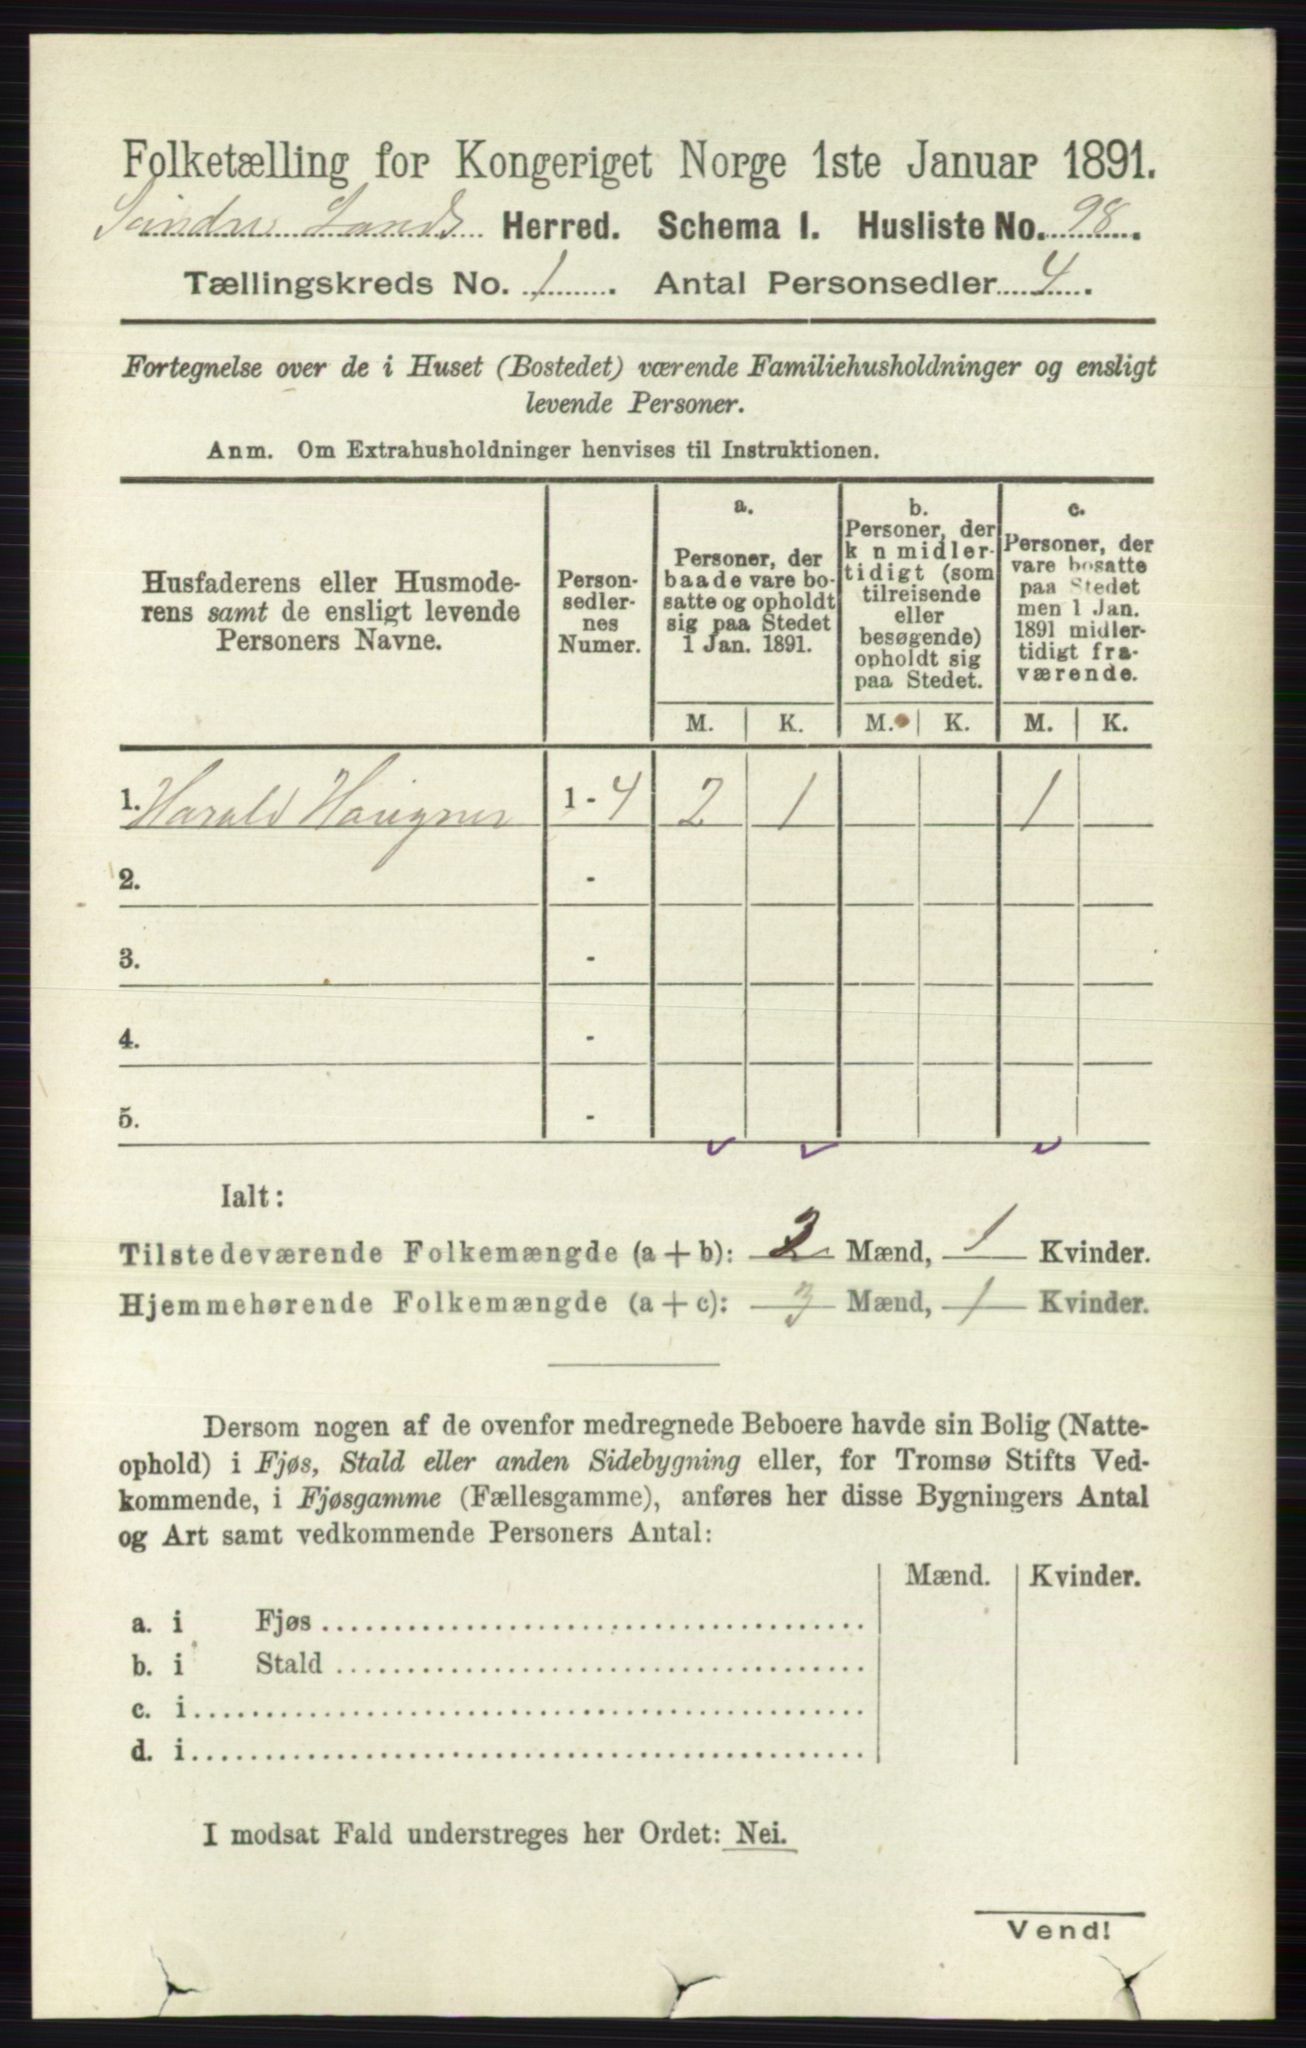 Folketælling for Kongeriget Norge 1ste Januar 1891.
Søndre Lands Herred. Schema I. Husliste No. 98.
Tællingskreds No. 1. Antal Personsedler 4.
Fortegnelse over de i Huset (Bostedet) værende Familiehusholdninger og ensligt
levende Personer.
Anm. Om Extrahusholdninger henvises til Instruktionen.
Husfaderens eller Husmode-
rens samt de ensligt levende
Personers Navne.
Person-
sedler-
nes
Numer.
a.
Personer, der
baade vare bo-
satte og opholdt
sig paa Stedet
1 Jan. 1891.
b.
Personer, der
k n midler-
tidigt (som
tilreisende
eller
besøgende)
opholdt sig
paa Stedet.
c.
Personer, der
vare bosatte
paa Stedet
men 1 Jan.
1891 midler-
tidigt fra-
værende.
M. K. M. K. M. K.
1. Harald 1 - 4 2 1 1
2. -
3. -
4. -
5. -
Ialt:
Tilstedeværende Folkemængde (a + b): 2 Mænd, 1 Kvinder.
Hjemmehørende Folkemængde (a + c): 3 Mænd, 1 Kvinder.
Dersom nogen af de ovenfor medregnede Beboere havde sin Bolig (Natte-
ophold) i Fjøs, Stald eller anden Sidebygning eller, for Tromsø Stifts Ved-
kommende, i Fjøsgamme (Fællesgamme), anføres her disse Bygningers Antal
og Art samt vedkommende Personers Antal:
Mænd. Kvinder.
a. i Fjøs
b. i Stald
c. i
d. i
I modsat Fald understreges her Ordet: Nei.
Vend!